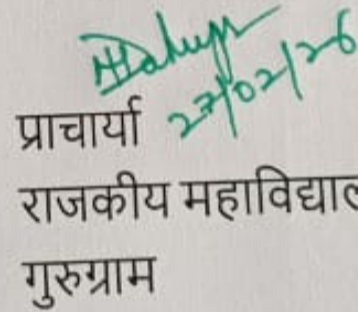 27/02/26
प्राचार्या
राजकीय महाविद्याल
गुरुग्राम